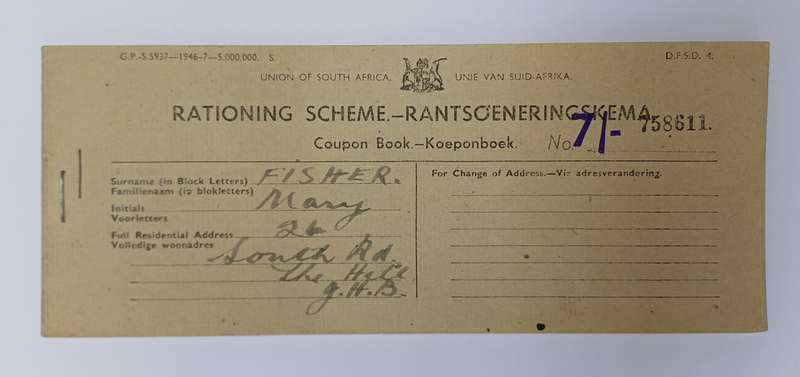 G.P.-S.5937—1946-7—5,000,000. S. D.F.S.D. 4.
UNION OF SOUTH AFRICA. UNIE VAN SUID-AFRIKA.
RATIONING SCHEME.—RANTSOENERINGSKEMA
Coupon Book.—Koeponboek. No. 7/- 758611.
Surname (in Block Letters) FISHER.
Familienaam (in blokletters)
Initials Mary
Voorletters
Full Residential Address 26
Volledige woonadres South Rd.
The Hill
G.H.B.
For Change of Address.—Vir adresverandering.